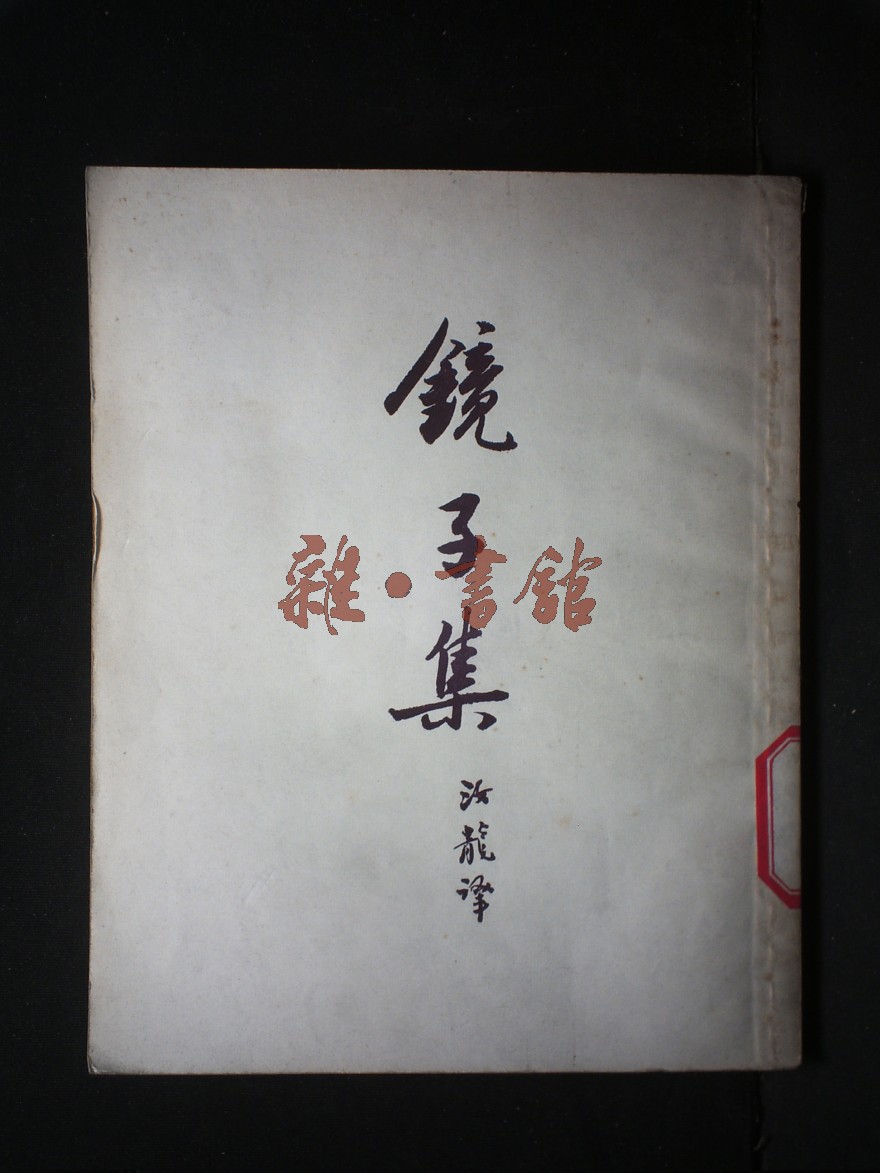 鏡子集
雜·書館
汝龍譯